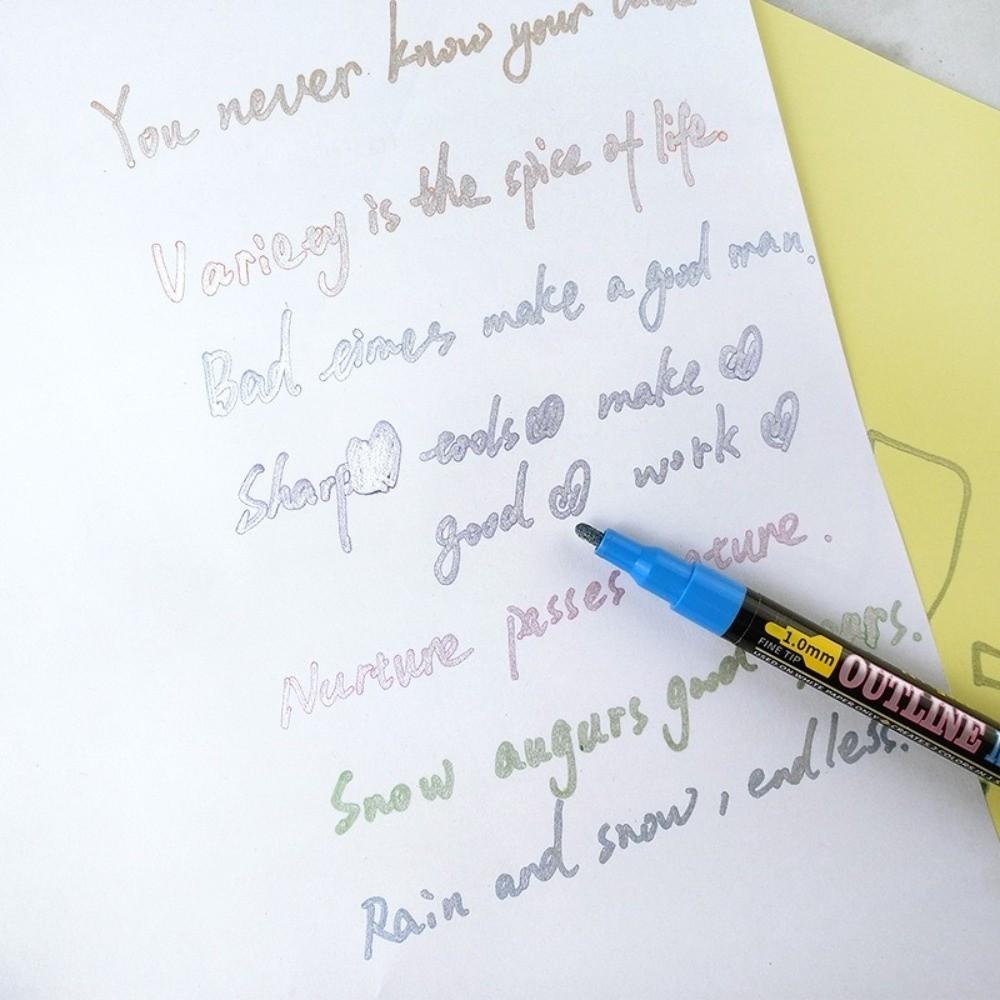 You never know your
Variety is the spice of life.
Bad times make a good man.
Sharp tools make
good work
Nurture passes
Snow augurs good
Rain and snow, endless.
1.0mm
FINE TIP
OUTLINE
USED ON WHITE PAPER ONLY CREATES 2 COLORS IN 1